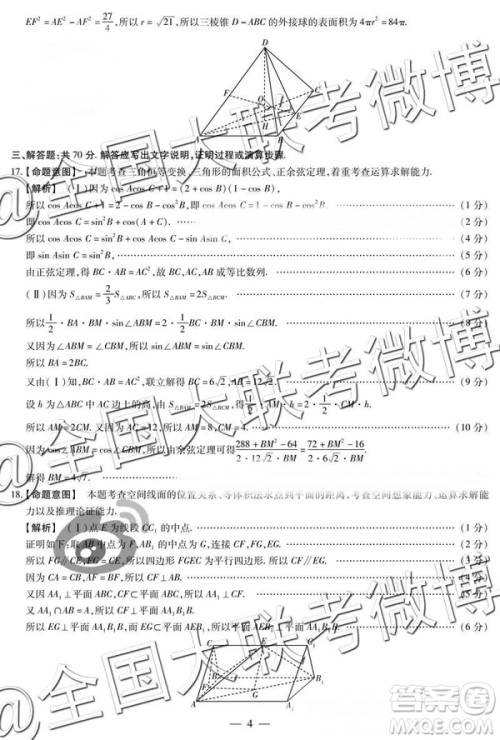 EF²=AE²-AF²=27/4,所以 r=√21,所以三棱锥 D-ABC 的外接球的表面积为 4πr²=84π.
三、解答题:共 70 分.解答应写出文字说明,证明过程或演算步骤.
17.【命题意图】本题考查三角恒等变换、三角形的面积公式、正余弦定理,着重考查运算求解能力.
【解析】(Ⅰ)因为 cos Acos C+1=(2+cos B)(1-cos B),
所以 cos Acos C+1=2-cos B-cos²B,即 cos Acos C=1-cos B-cos²B, (1 分)
即 cos Acos C=sin²B+cos(A+C). (2 分)
所以 cos Acos C=sin²B+cos Acos C-sin Asin C, (4 分)
即 sin Asin C=sin²B. (5 分)
由正弦定理,得 BC·AB=AC²,故 BC,AC,AB 成等比数列. (6 分)
(Ⅱ)因为 S△BAM=2/3 S△ABC,所以 S△BAM=2S△BCM. (7 分)
所以 1/2·BA·BM·sin∠ABM=2·1/2·BC·BM·sin∠CBM. (8 分)
又因为∠ABM=∠CBM,所以 sin∠ABM=sin∠CBM,
所以 BA=2BC. (9 分)
又由(Ⅰ)知,BC·AB=AC²,联立解得 BC=6√2,AB=12√2.
设 h 为△ABC 中 AC 边上的高,由 S△BAM=2S△BCM,得 1/2·AM·h=2·1/2·CM·h. (10 分)
所以 AM=2CM.又因为 AC=12,所以 AM=8,CM=4.
因为 cos∠ABM=cos∠CBM,所以由余弦定理可得 (288+BM²-64)/(2·12√2·BM)=(72+BM²-16)/(2·6√2·BM).
解得 BM=4√7.
18.【命题意图】 本题考查空间线面的位置关系、等体积法求点到平面的距离,考查空间想象能力、运算求解能力以及推理论证能力.
【解析】(Ⅰ)点 E 为线段 CC₁ 的中点. (1 分)
证明如下:取 AB 中点为 F,AB₁ 的中点为 G,连接 CF,FG,EG.
所以 FG∥CE,FG=CE,所以四边形 FGEC 为平行四边形.所以 CF∥EG. (3 分)
因为 CA=CB,AF=BF,所以 CF⊥AB. (4 分)
又因 AA₁⊥平面 ABC,CF⊂平面 ABC,所以 AA₁⊥CF. (5 分)
又 AA₁∩AB=A,所以 CF⊥平面 AA₁B₁B.
所以 EG⊥平面 AA₁B₁B,而 EG⊂平面 AB₁E, (6 分)
— 4 —
@全国大联考微博
@全国大联考微博
@全国大联考微博
答案圈